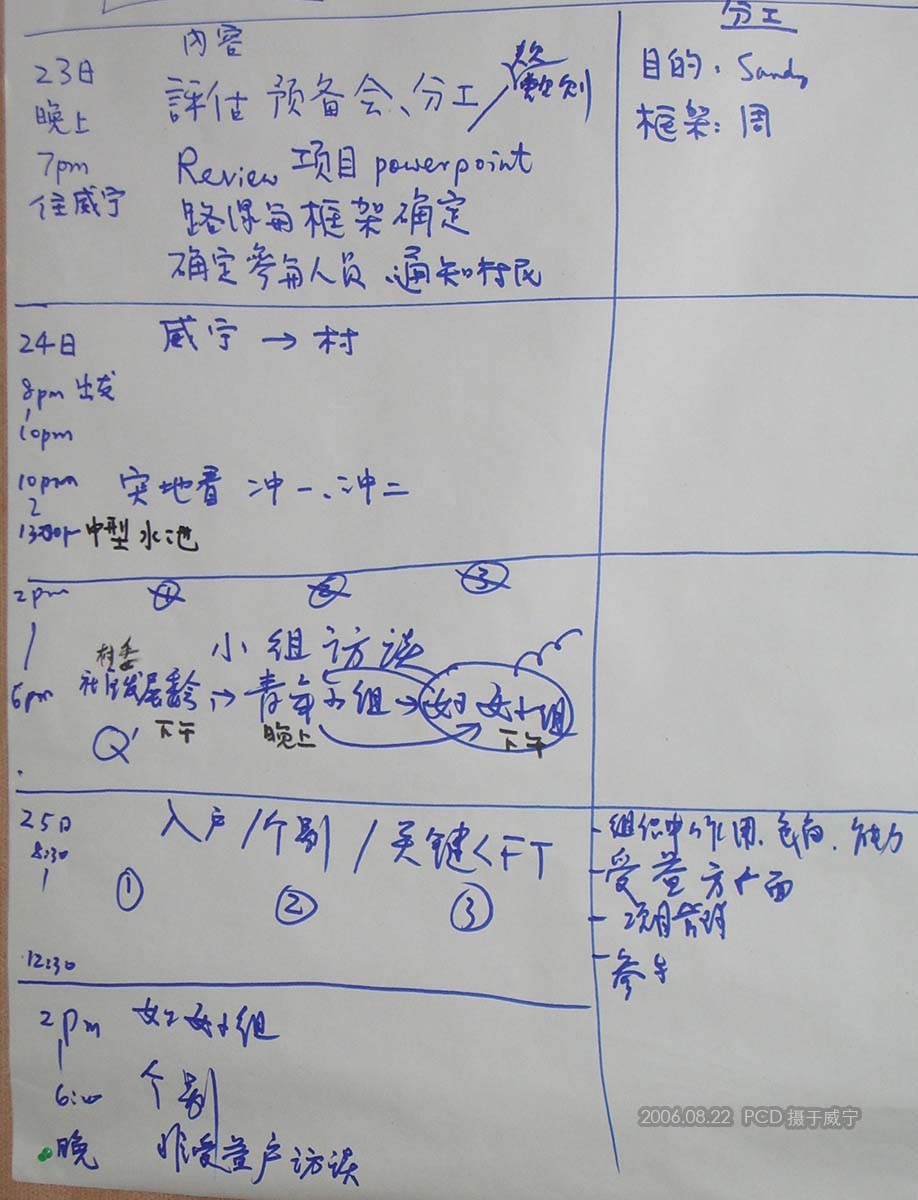 内容
分工
23日
晚上
7pm
住威宁
評估 预备会、分工
Review 项目 powerpoint
框架确定
确定参与人员、通知村民
目的: Sandy
框架: 周
24日
威宁 → 村
8pm 出发
10pm
10pm
实地看 冲一、冲二
中型水池
2pm
6pm
① ② ③
小组访谈
村委
→ 青年小组 → 妇女小组
Q'
下午
晚上
下午
25日
8:30
12:30
入户 / 个别 / 关键
① ② ③
- 组织中作用、能力
- 受益方 面
- 项目管理
- 参与
2pm
妇女小组
个别
晚
非受益户访谈
2006.08.22 PCD 摄于威宁